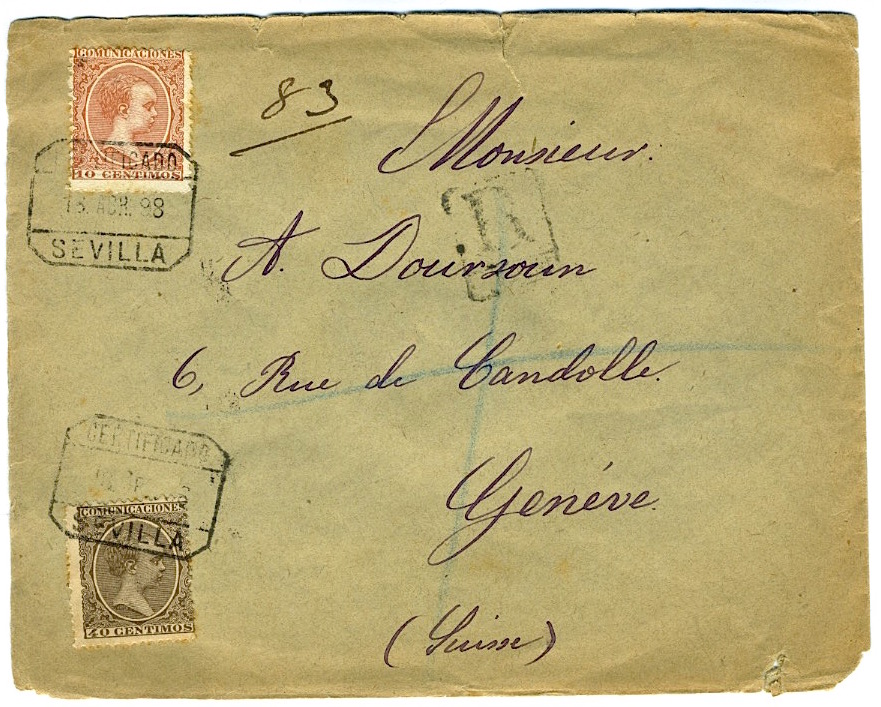 COMUNICACIONES
10 CENTIMOS
CERTIFICADO
ABR. 98
SEVILLA
83
R
Monsieur.
A. Doursoun
6, Rue de Candolle.
Genéve.
(Suisse)
CERTIFICADO
SEVILLA
COMUNICACIONES
40 CENTIMOS